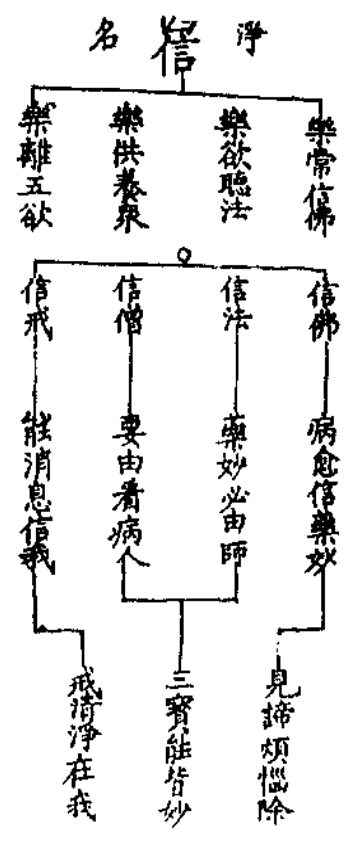 淨信名
樂常信佛
樂欲聽法
樂供養衆
樂離五欲
信佛
信法
信僧
信戒
病愈信藥妙
藥妙必由師
要由看病人
能消息信我
見諦煩惱除
三寶能皆妙
戒清淨在我